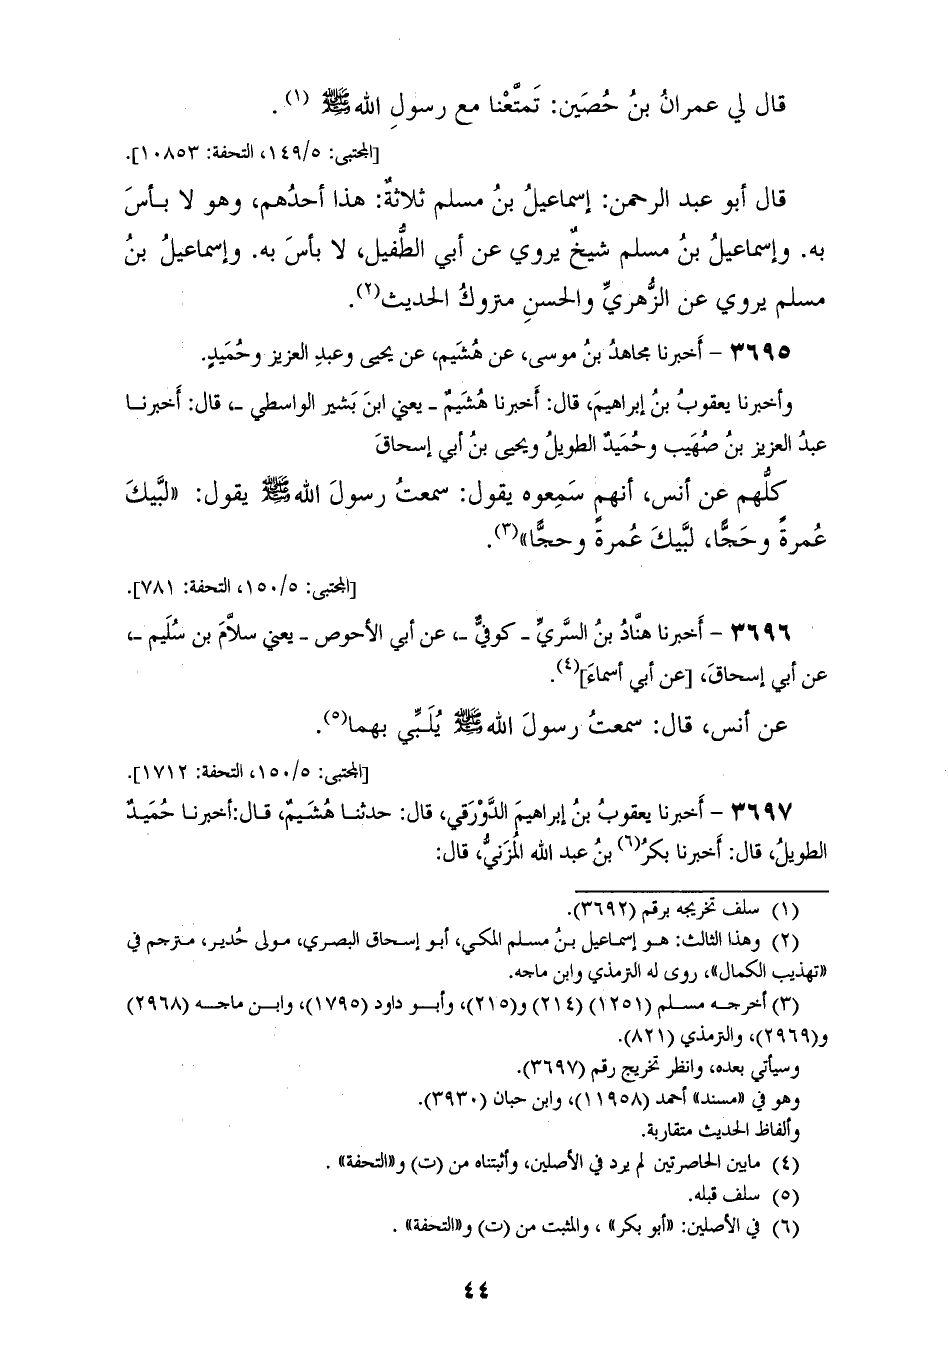 قال لي عمرانُ بنُ حُصَين: تَمتَّعْنا مع رسولِ الله ﷺ (١).
[المجتبى: ١٤٩/٥، التحفة: ١٠٨٥٣].
قال أبو عبد الرحمن: إسماعيلُ بنُ مسلم ثلاثةٌ: هذا أحدُهم، وهو لا بـأسَ
به. وإسماعيلُ بنُ مسلم شيخٌ يروي عن أبي الطُّفيل، لا بأسَ به. وإسماعيلُ بنُ
مسلم يروي عن الزُّهريِّ والحسنِ متروكُ الحديث(٢).
٣٦٩٥ - أَخبرنا مجاهدُ بنُ موسى، عن هُشَيم، عن يحيى وعبدِ العزيز وحُمَيدٍ.
وأخبرنا يعقوبُ بنُ إبراهيمَ، قال: أَخبرنا هُشَيمٌ ـ يعني ابنَ بَشير الواسطي ـ، قال: أَخبرنـا
عبدُ العزيز بنُ صُهَيب وحُمَيدٌ الطويلُ ويحيى بنُ أبي إسحاقَ
كلُّهم عن أنس، أنهم سَمِعوه يقول: سمعتُ رسولَ الله ﷺ يقول: «لبَّيكَ
عُمرةً وحَجًّا، لبَّيكَ عُمرةً وحجًّا»(٣).
[المجتبى: ١٥٠/٥، التحفة: ٧٨١].
٣٦٩٦ - أَخبرنا هنَّادُ بنُ السَّريِّ ـ كوفيٌّ ـ، عن أبي الأحوص ـ يعني سلاَّمَ بن سُلَيم ـ،
عن أبي إسحاقَ، [عن أبي أسماءَ](٤).
عن أنس، قال: سمعتُ رسولَ الله ﷺ يُلَـبِّي بهما(٥).
[المجتبى: ١٥٠/٥، التحفة: ١٧١٢].
٣٦٩٧ - أَخبرنا يعقوبُ بنُ إبراهيمَ الدَّوْرَقي، قال: حدثنـا هُشَيمٌ، قـال:أخبرنـا حُمَيدٌ
الطويلُ، قال: أَخبرنا بكرُ(٦) بنُ عبد الله المُزَنيُّ، قال:
(١) سلف تخريجه برقم (٣٦٩٢).
(٢) وهذا الثالث: هـو إسماعيل بـنُ مسلم المكي، أبـو إسـحاق البصري، مـولى حُديـر، مـترجم في
«تهذيب الكمال»، روى له الترمذي وابن ماجه.
(٣) أخرجـه مسـلم (١٢٥١) (٢١٤) و(٢١٥)، وأبـو داود (١٧٩٥)، وابـن ماجـه (٢٩٦٨)
و(٢٩٦٩)، والترمذي (٨٢١).
وسيأتي بعده، وانظر تخريج رقم (٣٦٩٧).
وهو في «مسند» أحمد (١١٩٥٨)، وابن حبان (٣٩٣٠).
وألفاظ الحديث متقاربة.
(٤) مابين الحاصرتين لم يرد في الأصلين، وأثبتناه من (ت) و«التحفة» .
(٥) سلف قبله.
(٦) في الأصلين: «أبو بكر» ، والمثبت من (ت) و«التحفة» .
٤٤